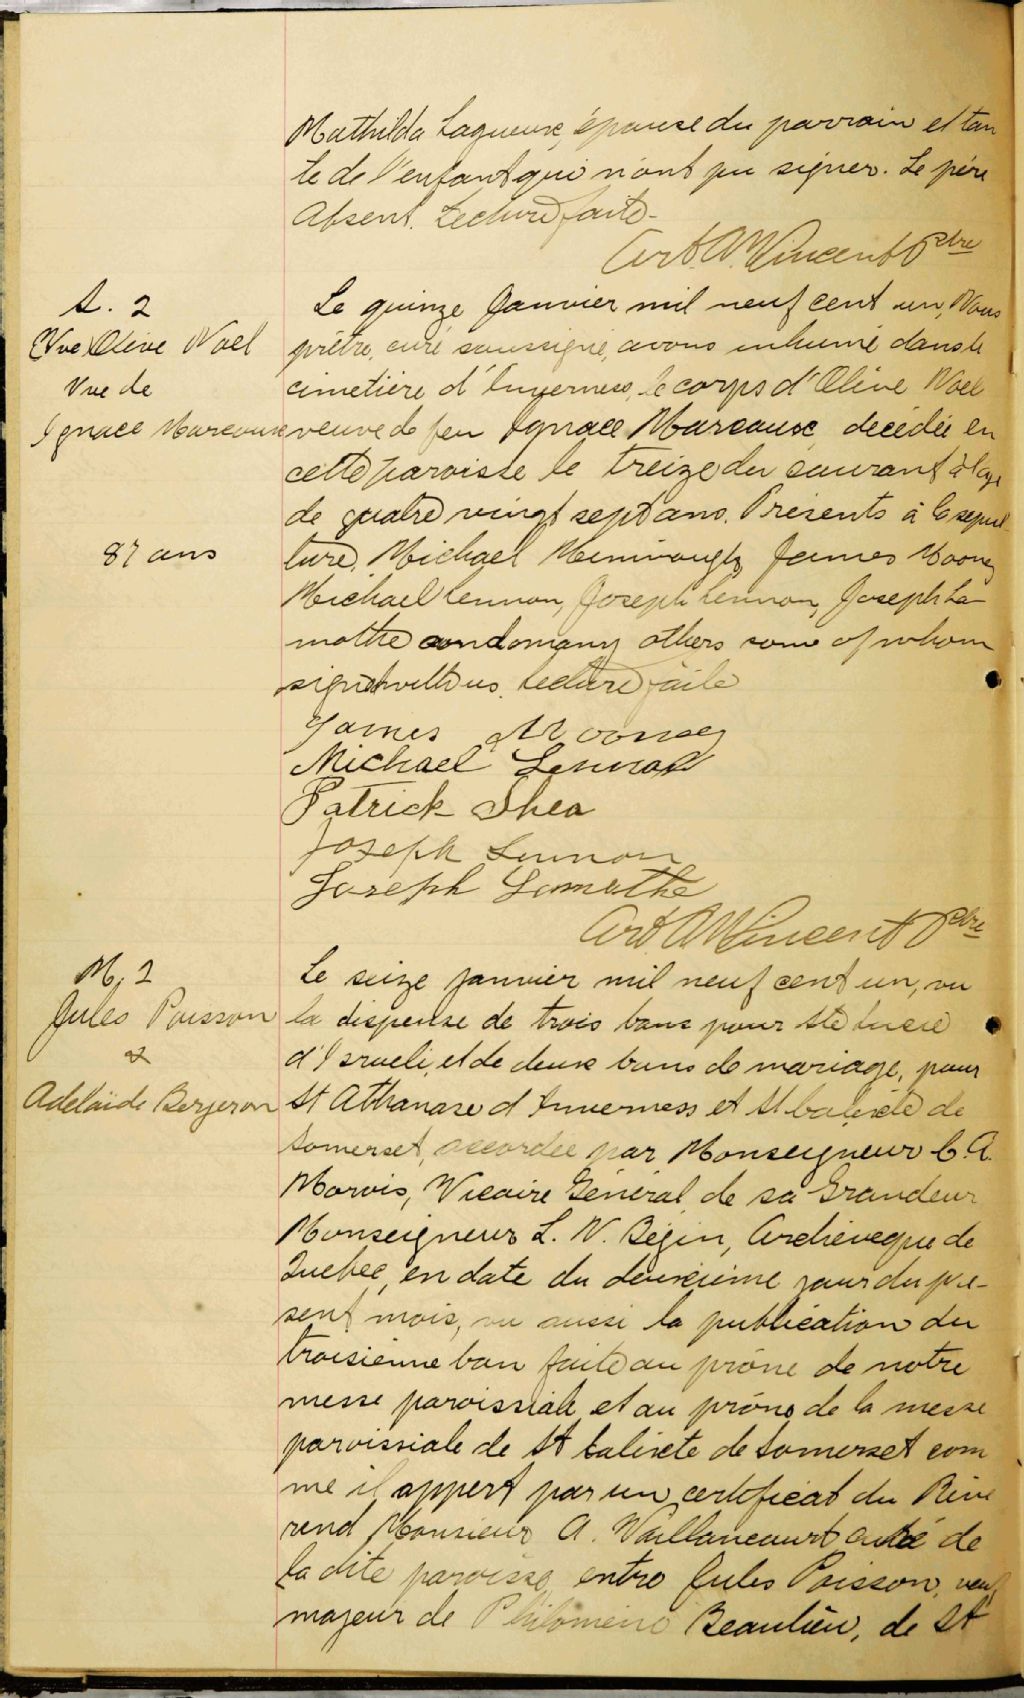 Mathilda Lagueux, épouse du parrain et tan
te de l'enfant qui n'ont pu signer. Le père
Absent. Lecture faite.
Art. A. Vincent Ptre
S. 2
Vve Olive Noel
Vve de
Ignace Marcoux
87 ans
Le quinze Janvier mil neuf cent un, Nous
prêtre, curé soussigné, avons inhumé dans le
cimetière d'Inverness, le corps d'Olive Noel
veuve de feu Ignace Marcoux, décédée en
cette paroisse le treize du courant à l'age
de quatre vingt sept ans. Présents à la sépul
ture, Michael James Mooney
Michael Lennon, Joseph Lennon, Joseph La-
mothe and many others some of whom
signed with us. Lecture faite
James Mooney
Michael Lennon
Patrick Shea
Joseph Lennon
Joseph Lamothe
Art A Vincent Ptre
M. 2
Jules Poisson
&
Adelaïde Bergeron
Le seize janvier mil neuf cent un, vu
la dispense de trois bans pour Ste Lucie
d'Israeli, et de deux bans de mariage, pour
St Athanase d'Inverness et St Calixte de
Somerset, accordée par Monseigneur C. A.
Marois, Vicaire Général de sa Grandeur
Monseigneur L. N. Bégin, Archévêque de
Quebec, en date du deuxième jour du pré-
sent mois, vu aussi la publication du
troisième ban faite au prône de notre
messe paroissiale et au prône de la messe
paroissiale de St Calixte de Somerset com
me il appert par un certificat du Révé
rend Monsieur A. Vaillancourt curé de
la dite paroisse, entre Jules Poisson, veuf
majeur de Philomène Beaulieu, de St